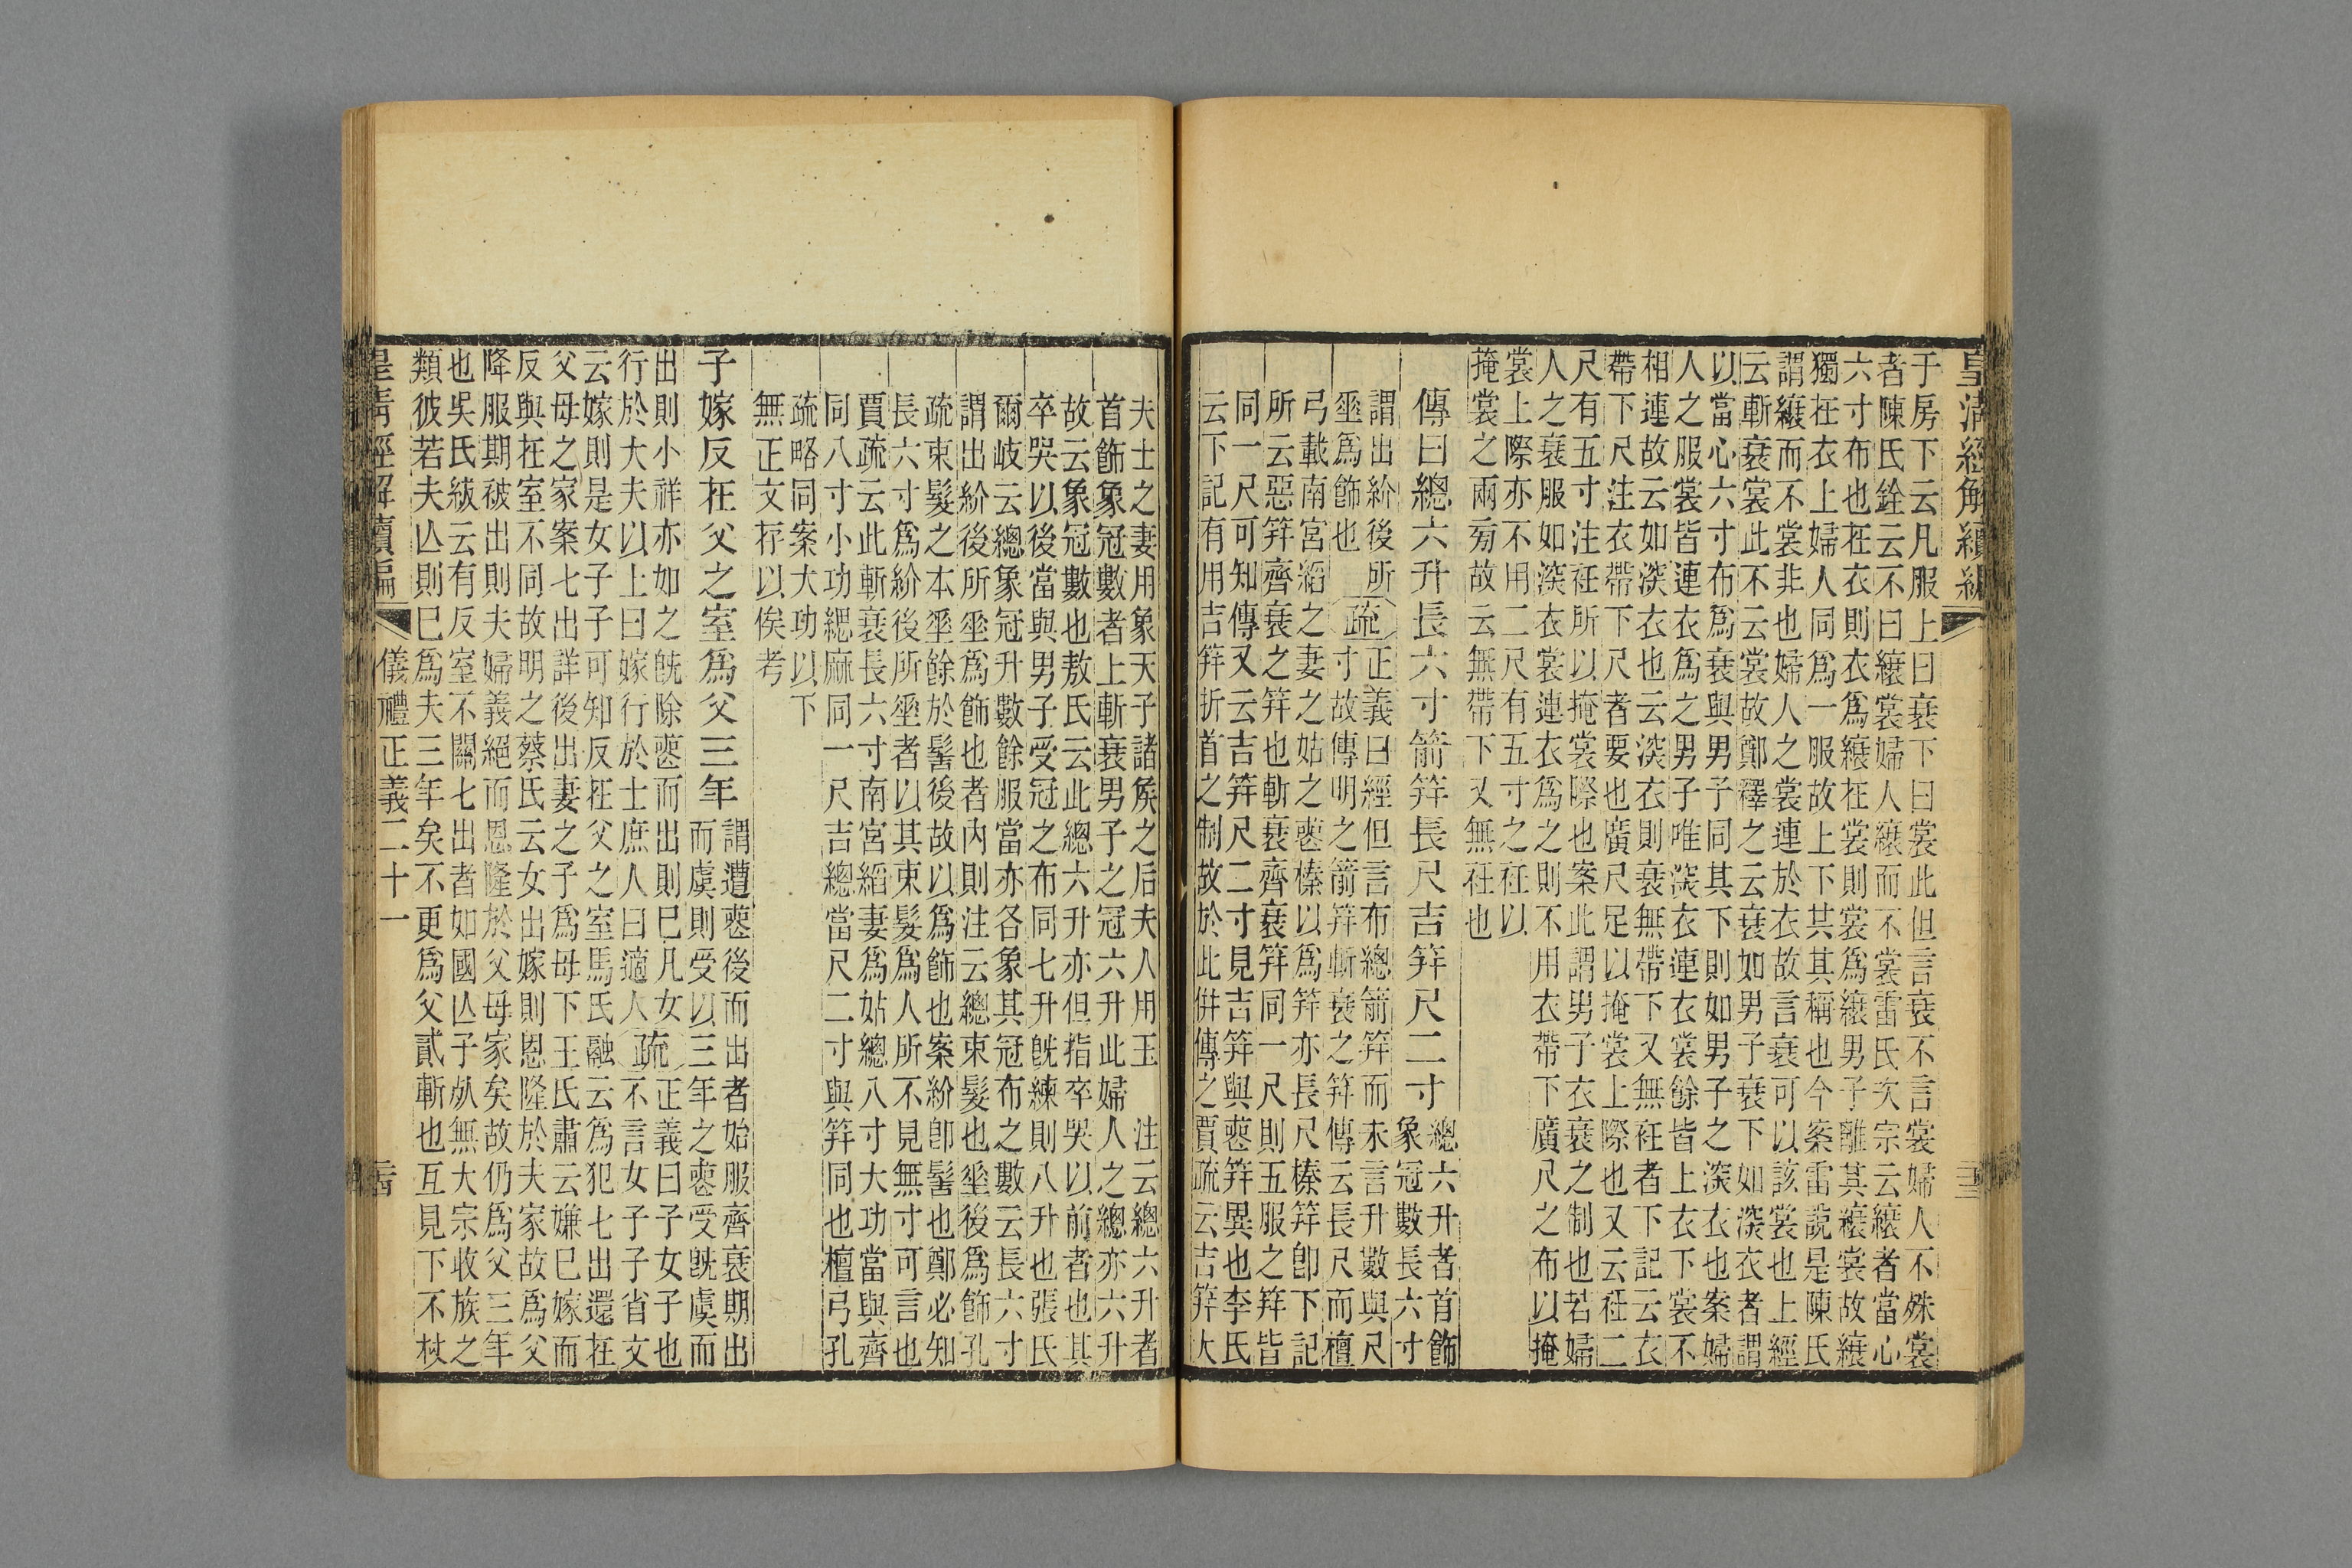 皇清經解續編
于房下云凡服上曰衰下曰裳此但言衰不言裳婦人不殊裳
者陳氏銓云不曰縗裳婦人縗而不裳雷氏次宗云縗者當心
六寸布也在衣則衣爲縗在裳則裳爲縗男子離其縗裳故縗
獨在衣上婦人同爲一服故上下其其稱也今案雷說是陳氏
謂縗而不裳非也婦人之裳連於衣故言衰可以該裳也上經
云斬衰裳此不云裳故鄭釋之云衰如男子衰下如深衣者謂
以當心六寸布爲衰與男子同其下則如男子之深衣也案婦
人之服裳皆連衣爲之男子唯深衣連衣裳餘皆上衣下裳不
相連故云如深衣也云深衣則衰無帶下又無衽者下記云衣
帶下尺注衣帶下尺者要也廣尺足以掩裳上際也又云衽二
尺有五寸注衽所以掩裳際也案此謂男子衣衰之制也若婦
人之衰服如深衣裳連衣爲之則不用衣帶下廣尺之布以掩
裳上際亦不用二尺有五寸之衽以
掩裳之兩旁故云無帶下又無衽也
傳曰總六升長六寸箭筓長尺吉筓尺二寸
總六升者首飾
象冠數長六寸
謂出紒後所
垂爲飾也
疏
正義曰經但言布總箭筓而未言升數與尺
寸故傳明之箭筓斬衰之筓傳云長尺而檀
弓載南宮縚之妻之姑之喪榛以爲筓亦長尺榛筓卽下記
所云惡筓齊衰之筓也斬衰齊衰筓同一尺則五服之筓皆
同一尺可知傳又云吉筓尺二寸見吉筓與喪筓異也李氏
云下記有用吉筓折首之制故於此併傳之賈疏云吉筓大
夫士之妻用象天子諸侯之后夫人用玉 注云總六升者
首飾象冠數者上斬衰男子之冠六升此婦人之總亦六升
故云象冠數也敖氏云此總六升亦但指卒哭以前者也其
卒哭以後當與男子受冠之布同七升旣練則八升也張氏
爾岐云總象冠升數餘服當亦各象其冠布之數云長六寸
謂出紒後所垂爲飾也者內則注云總束髮也垂後爲飾孔
疏束髮之本垂餘於髻後故以爲飾也案紒卽髻也鄭必知
長六寸爲紒後所垂者以其束髮爲人所不見無寸可言也
賈疏云此斬衰長六寸南宮縚妻爲姑總八寸大功當與齊
同八寸小功緦麻同一尺吉總當尺二寸與筓同也檀弓孔
疏略同案大功以下
無正文存以俟考
子嫁反在父之室爲父三年
謂遭喪後而出者始服齊衰期出
而虞則受以三年之喪受旣虞而
出則小祥亦如之旣除喪而出則已凡女
行於大夫以上曰嫁行於士庶人曰適人
疏
正義曰子女子也
不言女子子省文
云嫁則是女子子可知反在父之室馬氏融云爲犯七出還在
父母之家案七出詳後出妻之子爲母下王氏肅云嫌已嫁而
反與在室不同故明之蔡氏云女出嫁則恩隆於夫家故爲父
降服期被出則夫婦義絕而恩隆於父母家矣故仍爲父三年
也吳氏紱云有反室不關七出者如國亾子㒲無大宗收族之
類彼若夫亾則已爲夫三年矣不更爲父貳斬也互見下不杖
皇清經解續編
儀禮正義二十一